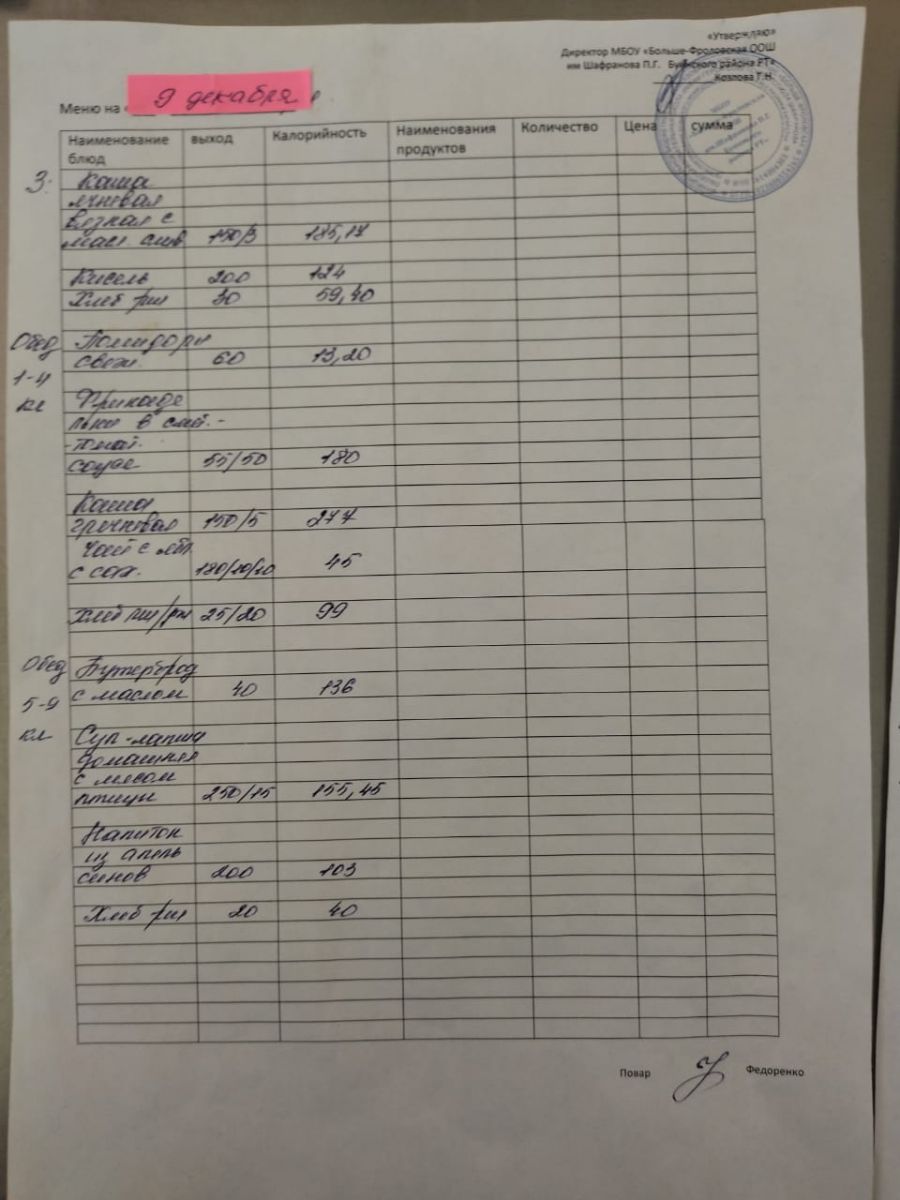 «Утверждаю»
Директор МБОУ «Больше-Фроловская ООШ
им Шафранова П.Г. Буинского района РТ»
Козлова Т.Н.
Меню на « 9 декабря
Наименование блюд выход Калорийность Наименования продуктов Количество Цена сумма
З. Каша
ячневая
вязкая с
масл. слив 150/5 185,17
Кисель 200 124
Хлеб рж 30 59,40
Обед Помидоры
свеж. 60 13,20
1-4
кл Фрикаде
льки в смет.-
-томат.
соусе 55/50 180
Каша
гречневая 150/5 277
Чай с
с сах. 180/10/10 45
Хлеб пш/рж 25/20 99
Обед Бутерброд
с маслом 40 136
5-9
кл Суп-лапша
домашняя
с мясом
птицы 250/15 155,45
Напиток
из апель
синов 200 103
Хлеб рж 20 40
Повар Федоренко